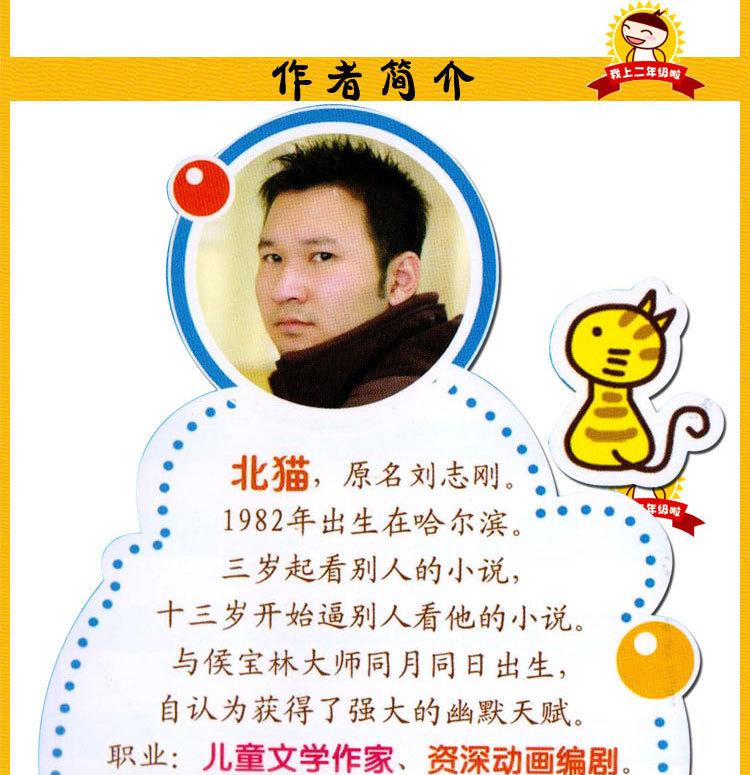 作者简介
我上二年级啦
北猫，原名刘志刚。
1982年出生在哈尔滨。
二年级啦
三岁起看别人的小说，
十三岁开始逼别人看他的小说。
与侯宝林大师同月同日出生，
自认为获得了强大的幽默天赋。
职业：儿童文学作家、资深动画编剧。